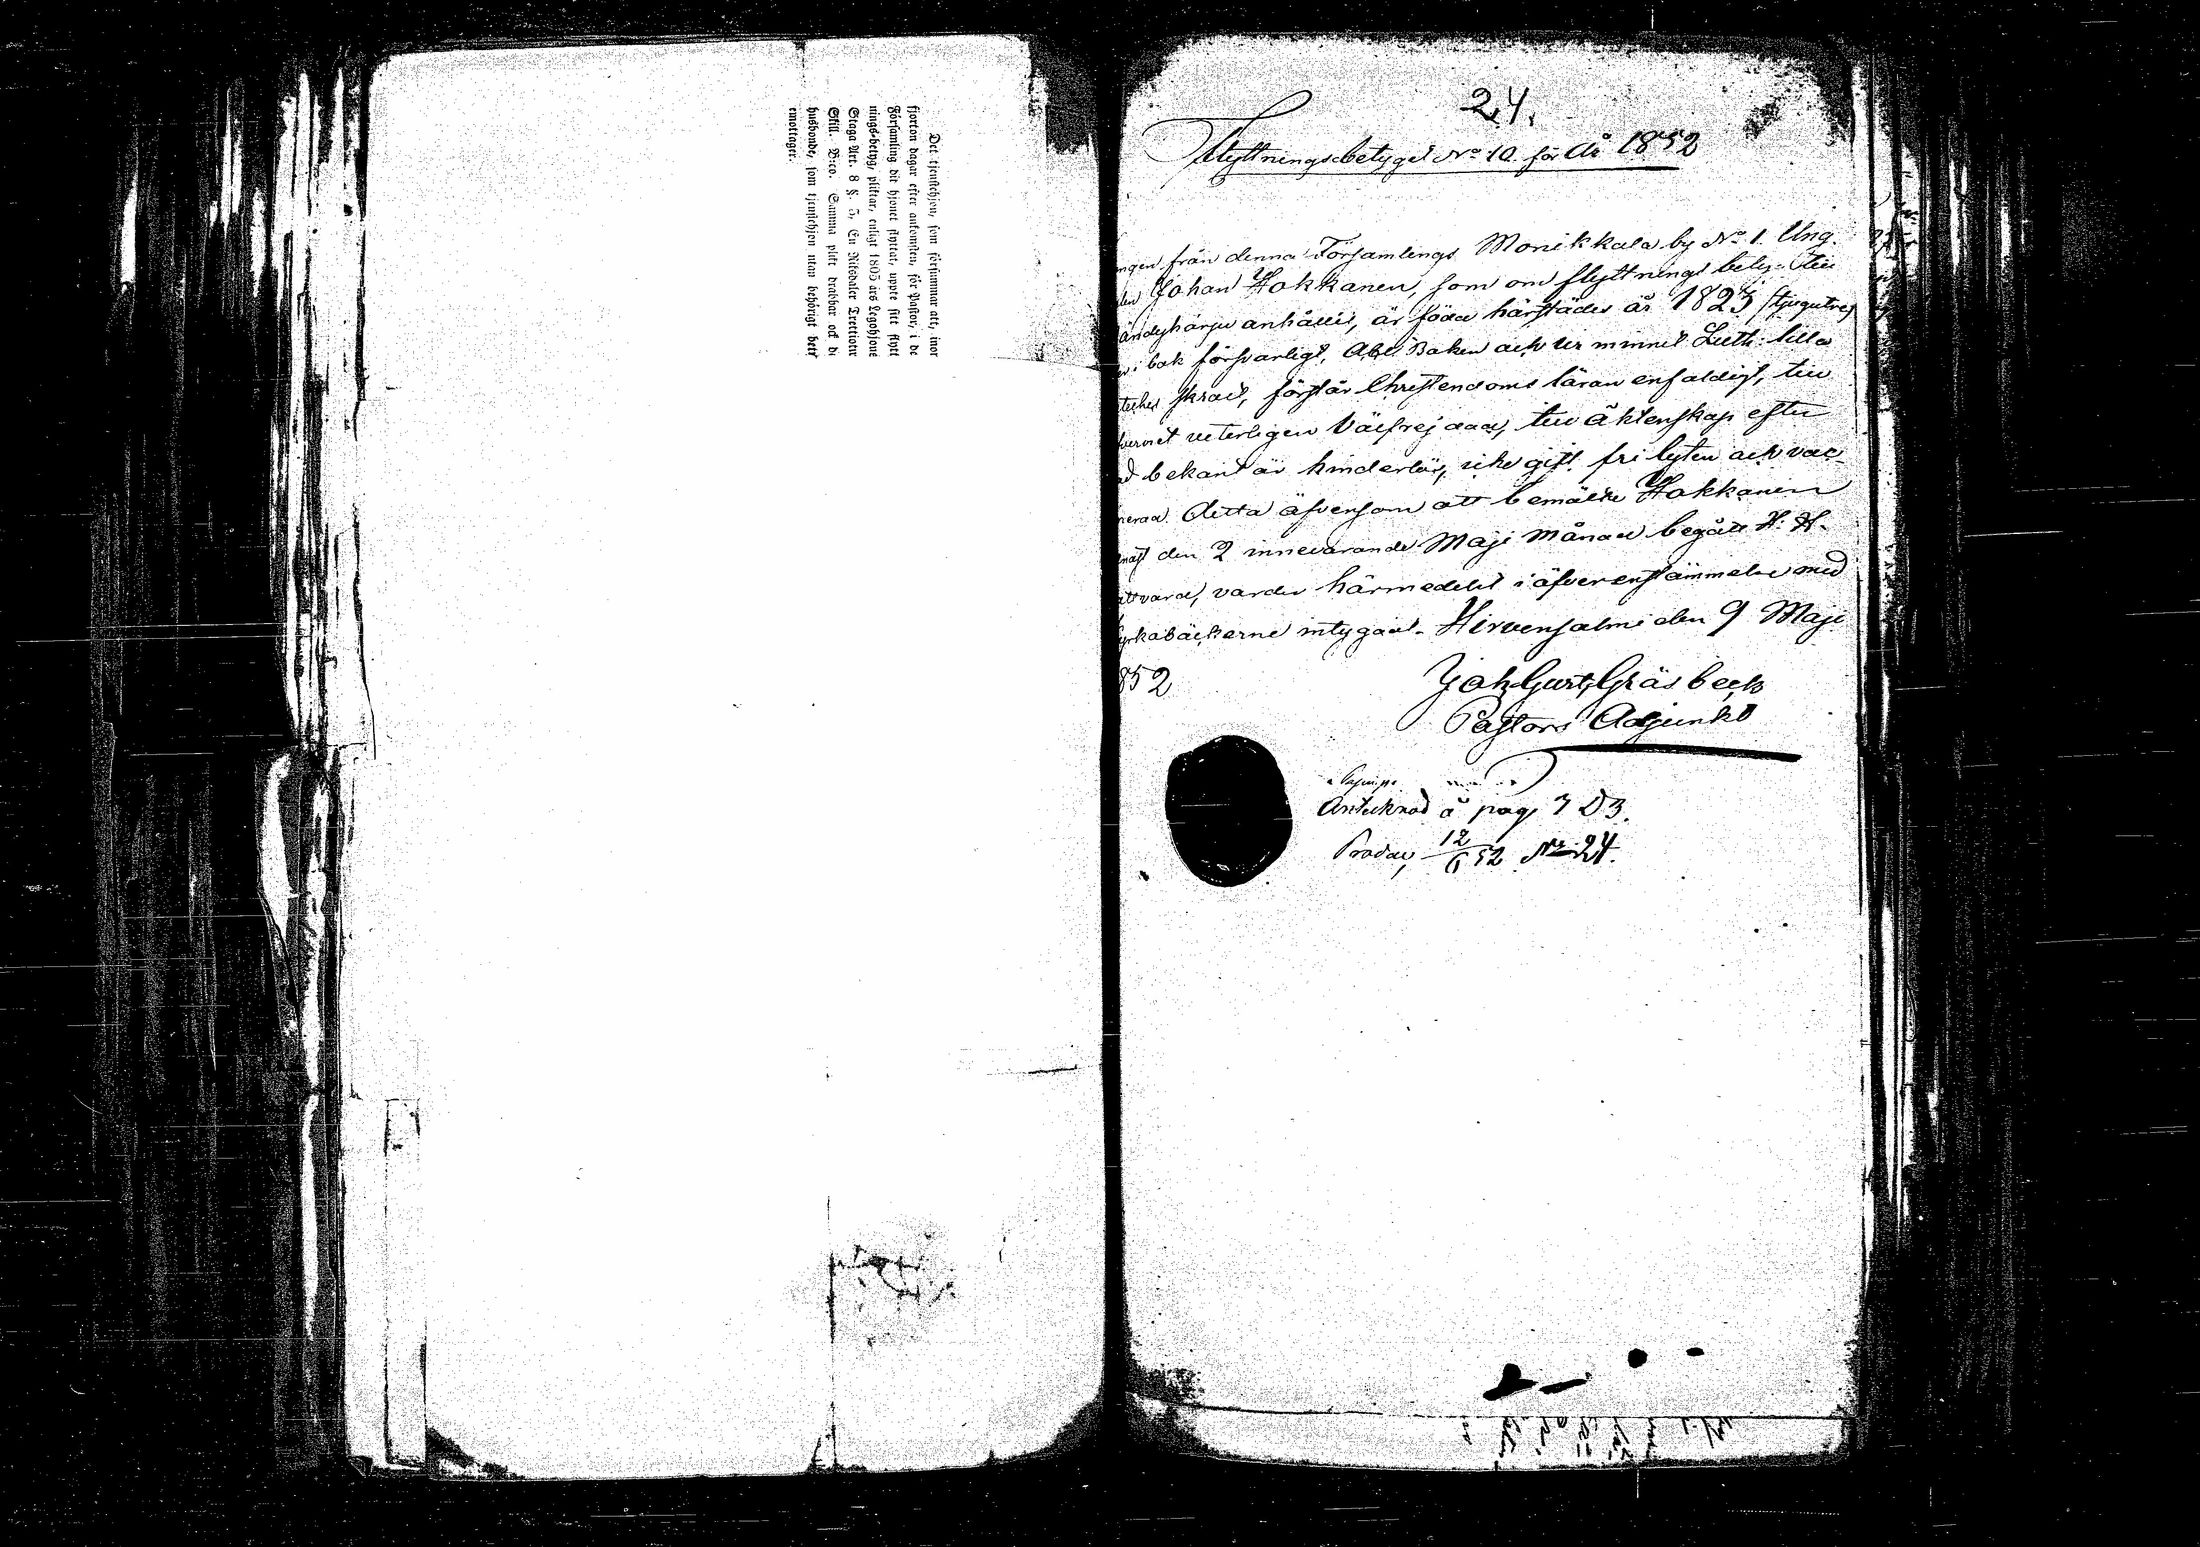 Det tjenstehjon, som försummar att, inom
fjorton dagar efter ankomsten, för Pastor, i de
Församling dit hjonet flyttat, uppte sitt flytt
nings-betyg, pliktar, enligt 1805 års Legohjons
Stega Art. 8 §. 5, En Riksdaler Trettiotu
Skill. B:co. Samma plikt drabbar ock di
husbonde, som tjenstehjon utan behörigt bety
emottager.
24.
Flyttningsbetyget No 10. för År 1852
ngen från denna Församlings Monikkala by No 1. Ung.
Johan Hokkanen, som om flyttnings betyg till
ändyharju anhållit, är född härstädes år 1823 /tjugutrej
i bok försvarligt, Abc Boken och ur minnet Luth: lilla
skrad, förstår Christendoms läran enfaldigt, till
vernet veterligen välfrejdad, till äktenskap efter
d bekant är hinderlös, icke gift, fri lyten och vac-
nerad. Detta äfvensom att bemälte Hokkanen
näst den 2 innevarande Maji Månad begått H. H.
attvard, varder härmedelst i öfverenstämmelse med
yrkoböckerne intygad. Hirvensalmi den 9 Maji
852
Joh. Gust. Gräsbeck
Pastors Adjunkt
Antecknad å pag, 7 D3.
Prodac, 12/6 52 No 24.